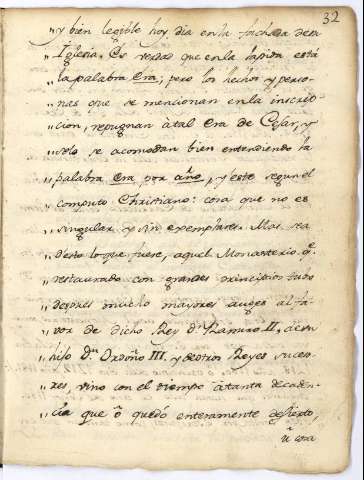 32
"y bien legible hoy dia en la fachada de su
"Iglesia. Es verdad que en la lapida está
"la palabra Era; pero los hechos y perso-
"nas que se mencionan en la inscrip-
"cion, repugnan à tal Era de Cesar, y
"solo se acomodan bien entendiendo la
"palabra Era por año, y este segun el
"computo Christiano: cosa que no es
"singular y sin exemplares. Mas sea
"desto lo que fuere, aquel Monasterio q.e
"restaurado con grandes principios tubo
"despues mucho mayores auges al fa-
"vor de dicho Rey D. Ramiro II, de su
"hijo D.n Ordoño III, y de otros Reyes suces-
"res, vino con el tiempo à tanta decaden-
"cia que ò quedó enteramente desierto,
ù otra